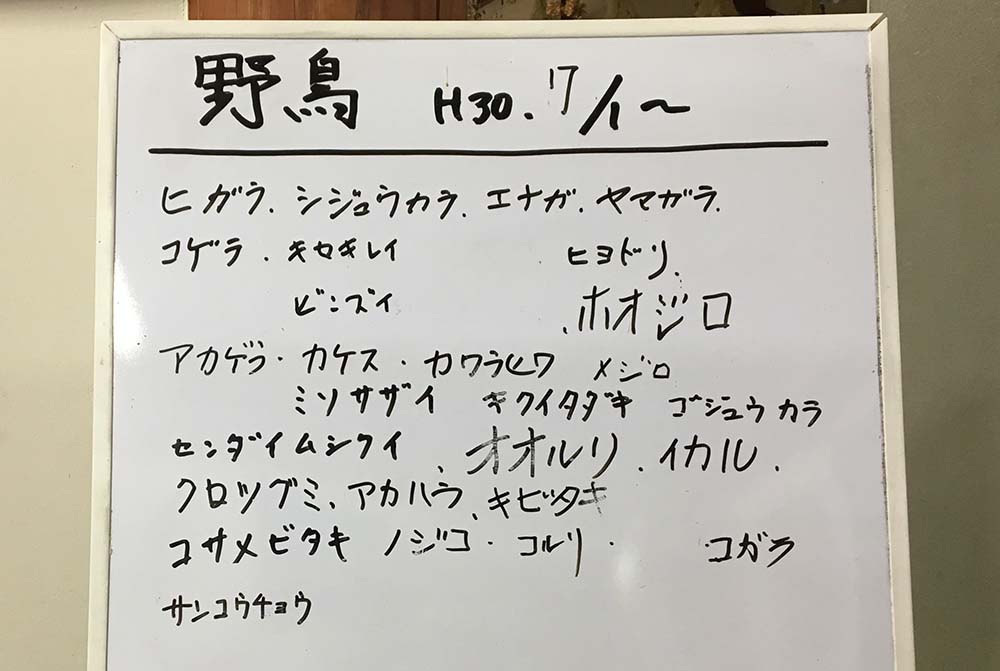 野鳥 H30. 7/1~
ヒガラ. シジュウカラ. エナガ. ヤマガラ.
コゲラ. キセキレイ ヒヨドリ.
ビンズイ .ホオジロ
アカゲラ・カケス・カワラヒワ メジロ
ミソサザイ キクイタダキ ゴジュウカラ
センダイムシクイ 、オオルリ . イカル .
クロツグミ、アカハラ、キビタキ
コサメビタキ ノジコ・コルリ・ ・コガラ
サンコウチョウ